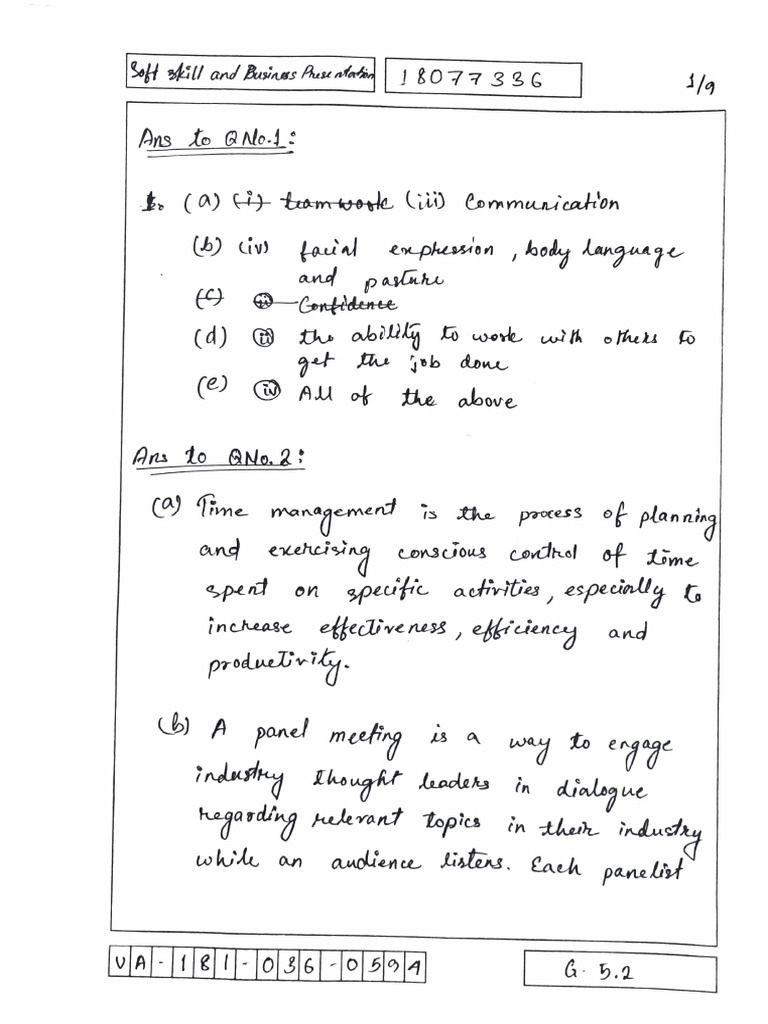 Soft skill and Business Presentation
18077336
1/9
Ans to Q No.1:
1. (a) (i) team work (iii) Communication
(b) (iv) facial expression, body language
and pasture
(c) (ii) Confidence
(d) (ii) the ability to work with others to
get the job done
(e) (iv) All of the above
Ans to QNo.2:
(a) Time management is the process of planning
and exercising conscious control of time
spent on specific activities, especially to
increase effectiveness, efficiency and
productivity.
(b) A panel meeting is a way to engage
industry thought leaders in dialogue
regarding relevant topics in their industry
while an audience listens. Each panelist
VA-181-036-059A
G. 5.2